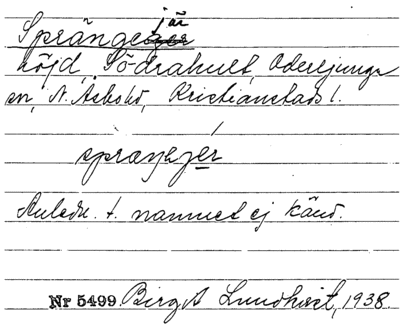 Sprängejär
höjd, Södrahult, Oderljunga
sn, N. Åsbohd, Kristianstads l.
spraŋejér
Anledn. t. namnet ej känd.
Nr 5499 Birgit Lundkvist, 1938.